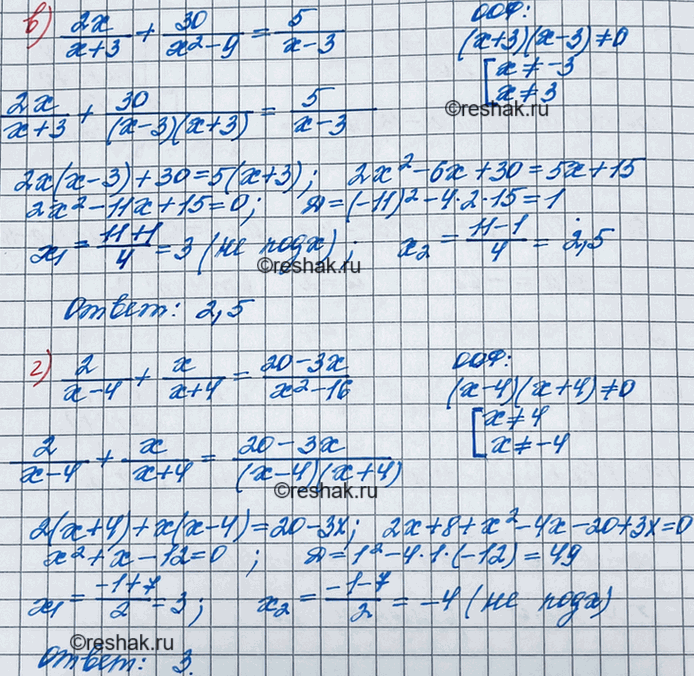 в) 2x/(x+3) + 30/(x²-9) = 5/(x-3)
ООФ:
(x+3)(x-3)≠0
[x≠-3
x≠3
©reshak.ru
2x/(x+3) + 30/((x-3)(x+3)) = 5/(x-3)
2x(x-3)+30=5(x+3); 2x²-6x+30=5x+15
2x²-11x+15=0; Д=(-11)²-4·2·15=1
x₁=(11+1)/4=3 (не подх); x₂=(11-1)/4=2,5
©reshak.ru
Ответ: 2,5
г) 2/(x-4) + x/(x+4) = (20-3x)/(x²-16)
ООФ:
(x-4)(x+4)≠0
[x≠4
x≠-4
2/(x-4) + x/(x+4) = (20-3x)/((x-4)(x+4))
©reshak.ru
2(x+4)+x(x-4)=20-3x; 2x+8+x²-4x-20+3x=0
x²+x-12=0; Д=1²-4·1·(-12)=49
x₁=(-1+7)/2=3; x₂=(-1-7)/2=-4 (не подх)
©reshak.ru
Ответ: 3.